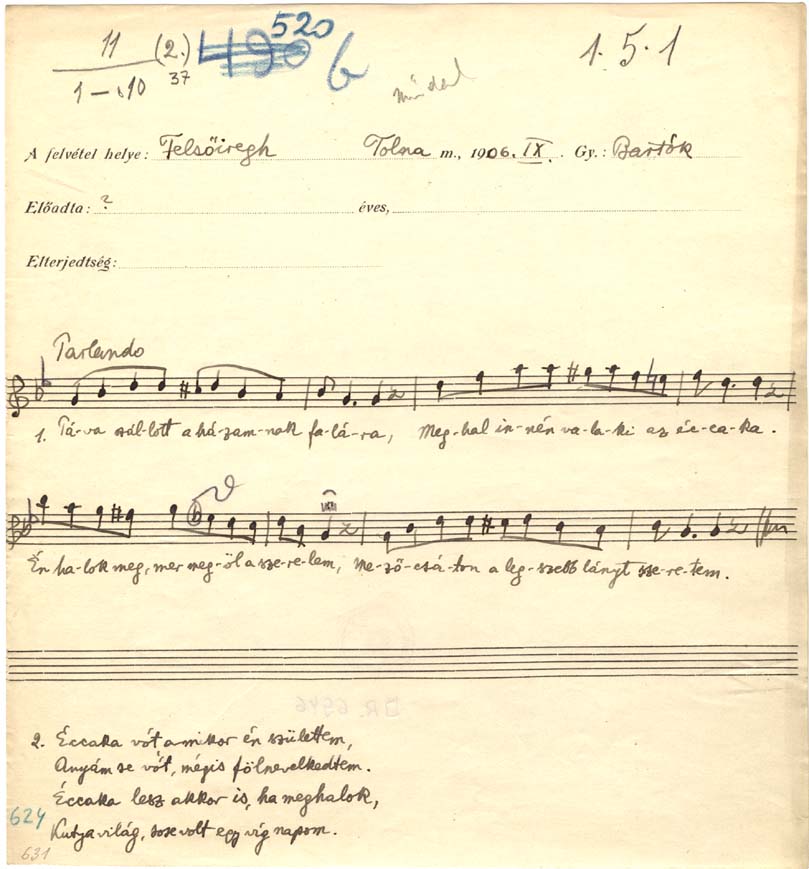 11 (2.) 490 520 b 1.5.1
1 – 10 37
A felvétel helye: Felsőiregh Tolna m., 1906. IX. Gy.: Bartók
Előadta: ? éves,
Elterjedtség:
Parlando
1. Pá-va szál-lott a há-zam-nak fa-lá-ra, Meg-hal in-nén va-la-ki az éc-ca-ka.
Én ha-lok meg, mer meg-öl a sze-re-lem, Me-ző-csá-ton a leg-szebb lányt sze-re-tem.
DR 6946
2. Éccaka vót amikor én születtem,
Anyám se vót, mégis fölnevelkedtem.
Éccaka lesz akkor is, ha meghalok,
624 Kutya világ, sose volt egy víg napom.
631